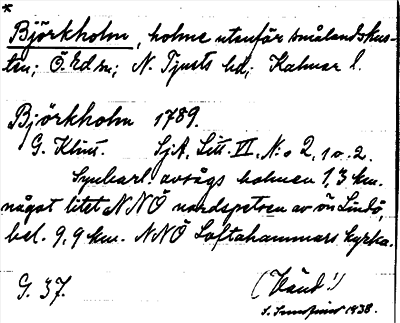 *
Björkholm, holme utanför smålandskus-
ten; Ö. Ed sn; N. Tjusts hd; Kalmar l.
Björkholm 1789.
G. Klint. Sjk, Litt VI, N:o 2, 1 o. 2.
Synbarl. avsågs holmen 1,3 km.
något litet NNÖ nordspetsen av ön Lindö,
bel. 9,9 km. NNÖ Loftahammars kyrka.
G. 37. (Vänd!)
1938.